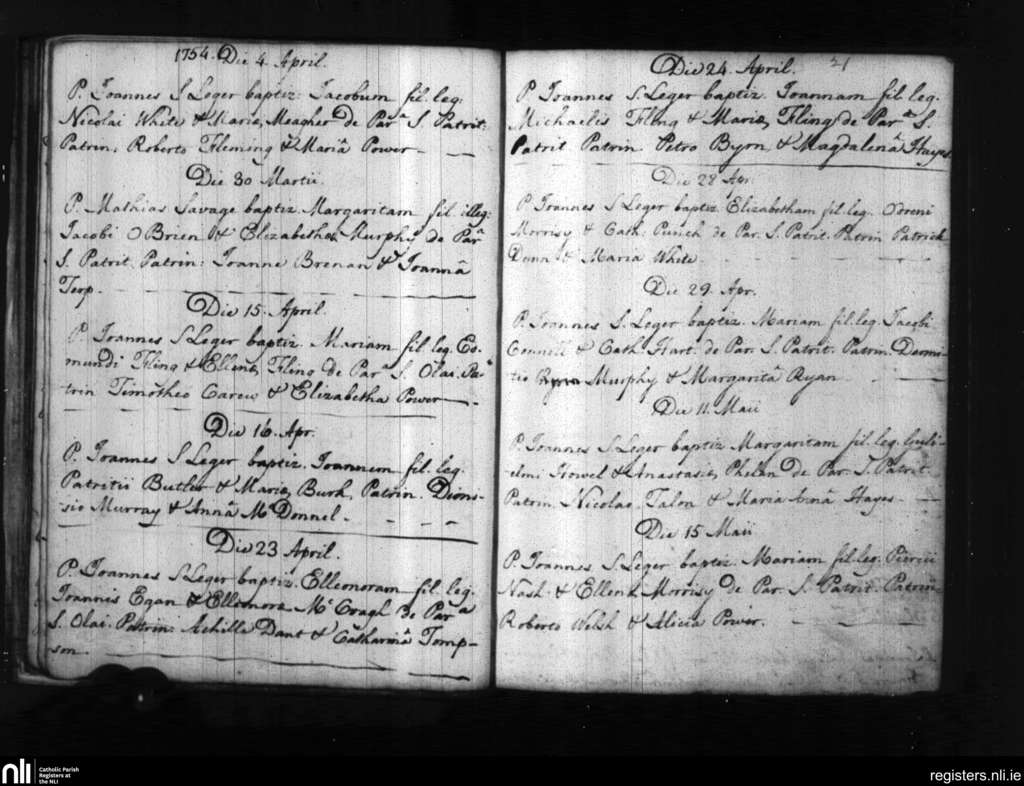 1754. Die 4. April.
P. Joannes S Leger baptiz: Jacobum fil: leg:
Nicolai White & Mariæ Meagher de Parª S. Patrit:
Patrin: Roberto Fleming & Mariâ Power
Die 30 Martii.
P. Mathias Savage baptiz. Margaritam fil: illeg:
Jacobi OBrien & Elizabethæ Murphy de Parª
S. Patrit. Patrin: Joanne Brenan & Joannâ
Terp.
Die 15. April.
P. Joannes S Leger baptiz. Mariam fil: leg. Ed-
mundi Fling & Ellenæ Fling de Parª S. Olai. Pa-
trin Timotheo Carew & Elizabetha Power
Die 16. Apr.
P. Joannes S Leger baptiz. Joannem fil. leg.
Patritii Butler & Mariæ Burk. Patrin. Dioni-
sio Murray & Annâ Mc Donnel.
Die 23 April.
P. Joannes S Leger baptiz. Ellenoram fil. leg.
Joannis Egan & Ellenora Mc Cragh de Parª
S. Olai. Patrin: Achille Dant & Catharinâ Tomp-
son
21
Die 24. April.
P. Joannes S. Leger baptiz. Joannam fil. leg.
Michaelis Fling & Mariæ Fling de Parª S.
Patrit Patrin Petro Byrn & Magdalenâ Hayes
Die 28 Apr
P. Joannes S Leger baptiz. Elizabetham fil. leg. Odoeni
Morrisy & Cath: Punch de Par. S. Patrit. Patrin Patrick
Dunn & Maria White.
Die 29. Apr.
P. Joannes S. Leger baptiz. Mariam fil. leg. Jacobi
Connell & Cath. Hart. de Par. S. Patrit. Patrin. Dermi-
tio Murphy & Margaritâ Ryan
Die 11. Maii
P. Joannes S. Leger baptiz. Margaritam fil. leg. Guli-
elmi Howel & Anastasiæ Phelan de Par. S. Patrit.
Patrin. Nicolao Talon & Maria Annâ Hayes
Die 15 Maii
P. Joannes S. Leger baptiz. Mariam fil. leg. Piercii
Nash. & Ellenæ Morrisy de Par. S. Patrit. Patrin-
Roberto Welsh & Alicia Power.
nli Catholic Parish
Registers at
the NLI
registers.nli.ie